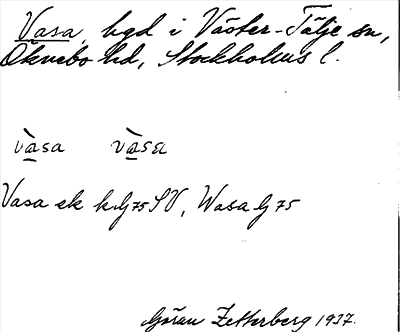 Vasa, hgd i Väster-Tälje sn,
Öknebo hd, Stockholms l.
và̱sa và̱sa
Vasa ek kG75SV, Wasa G75
Göran Zetterberg 1937.